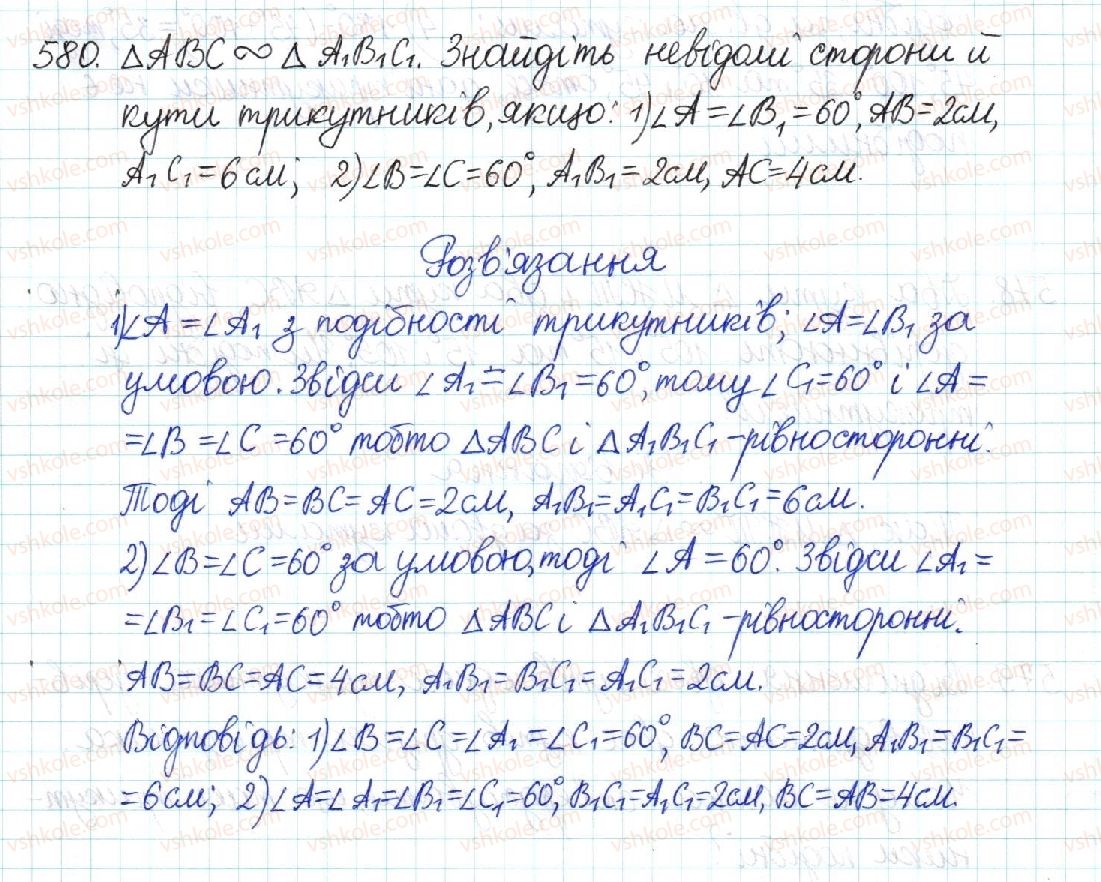 580. △ABC ∾ △A₁B₁C₁. Знайдіть невідомі сторони й
кути трикутників, якщо: 1) ∠A = ∠B₁ = 60°, AB = 2см,
A₁C₁ = 6 см; 2) ∠B = ∠C = 60°, A₁B₁ = 2см, AC = 4см.
Розв'язання
1) ∠A = ∠A₁ з подібності трикутників; ∠A = ∠B₁ за
умовою. Звідси ∠A₁ = ∠B₁ = 60°, тому ∠C₁ = 60° і ∠A =
= ∠B = ∠C = 60° тобто △ABC і △A₁B₁C₁ - рівносторонні.
Тоді AB = BC = AC = 2см, A₁B₁ = A₁C₁ = B₁C₁ = 6 см.
2) ∠B = ∠C = 60° за умовою, тоді ∠A = 60°. Звідси ∠A₁ =
= ∠B₁ = ∠C₁ = 60° тобто △ABC і △A₁B₁C₁ - рівносторонні.
AB = BC = AC = 4см, A₁B₁ = B₁C₁ = A₁C₁ = 2см.
Відповідь: 1) ∠B = ∠C = ∠A₁ = ∠C₁ = 60°, BC = AC = 2см, A₁B₁ = B₁C₁ =
= 6 см; 2) ∠A = ∠A₁ = ∠B₁ = ∠C₁ = 60°, B₁C₁ = A₁C₁ = 2см, BC = AB = 4см.